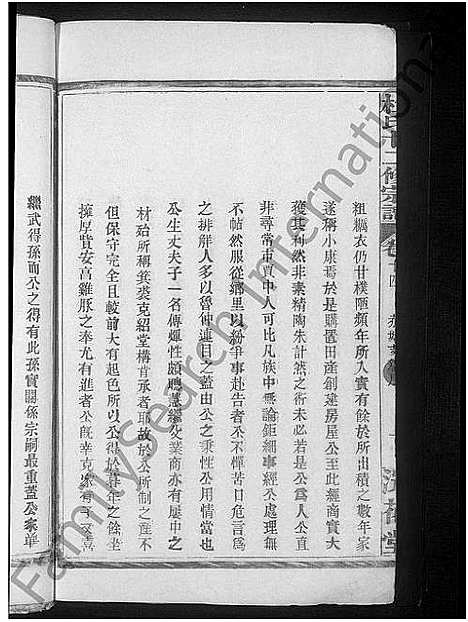 杜氏十二修宗譜
卷十四
粗糲衣仍甘樸陋頻年所入實有餘於所出積之數年家
遂稱小康焉於是購置田產創建房屋公至此經商實大
獲其利然非素精陶朱計然之術未必若是公為人公直
非尋常市賈中人可比凡族中無論鉅細事經公處理無
不帖然服從鄉里以紛爭事赴告者公不憚苦口危言為
之排解人多以魯仲連目之蓋由公之秉性公用情當也
公生丈夫子一名傳輝性頗聰慧繼父業商亦有屢中之
材殆所稱箕裘克紹堂構肯承者耶故於公所制之產不
但保守完全且較前大有起色所以公得於暮年之餘坐
擁厚貲安高雞豚之奉尤有進者公既幸克家有子又喜
繩武得孫而公之得有此孫實關係宗嗣最重蓋公家單
FamilySearch International